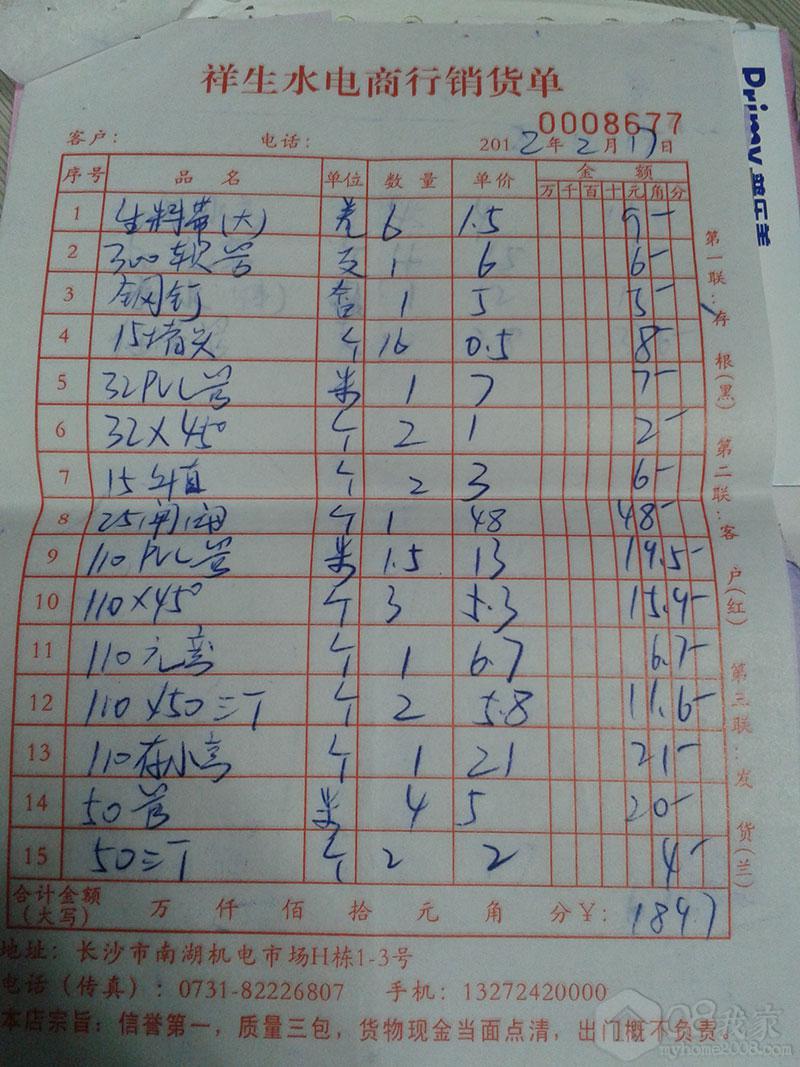 祥生水电商行销货单
0008677
客户： 电话： 2012年2月17日
序号 品名 单位 数量 单价 金额
万 千 百 十 元 角 分
1 生料带(大) 卷 6 1.5 9-
2 300软管 支 1 6 6-
3 钢钉 盒 1 5 5-
4 15堵头 个 16 0.5 8-
5 32PVC管 米 1 7 7-
6 32×45° 个 2 1 2-
7 15 直 个 2 3 6-
8 25闸阀 个 1 48 48-
9 110PVC管 米 1.5 13 19.5-
10 110×45° 个 3 5.3 15.9-
11 110 弯 个 1 6.7 6.7-
12 110×50三丁 个 2 5.8 11.6-
13 110存水弯 个 1 21 21-
14 50管 米 4 5 20-
15 50三丁 个 2 2 4-
合计金额（大写） 万 仟 佰 拾 元 角 分 ¥: 189.7
地址：长沙市南湖机电市场H栋1-3号
电话（传真）：0731-82226807 手机：13272420000
本店宗旨：信誉第一，质量三包，货物现金当面点清，出门概不负责。
第一联：存根(黑) 第二联：客户(红) 第三联：发货(兰)
08我家
myhome2008.com